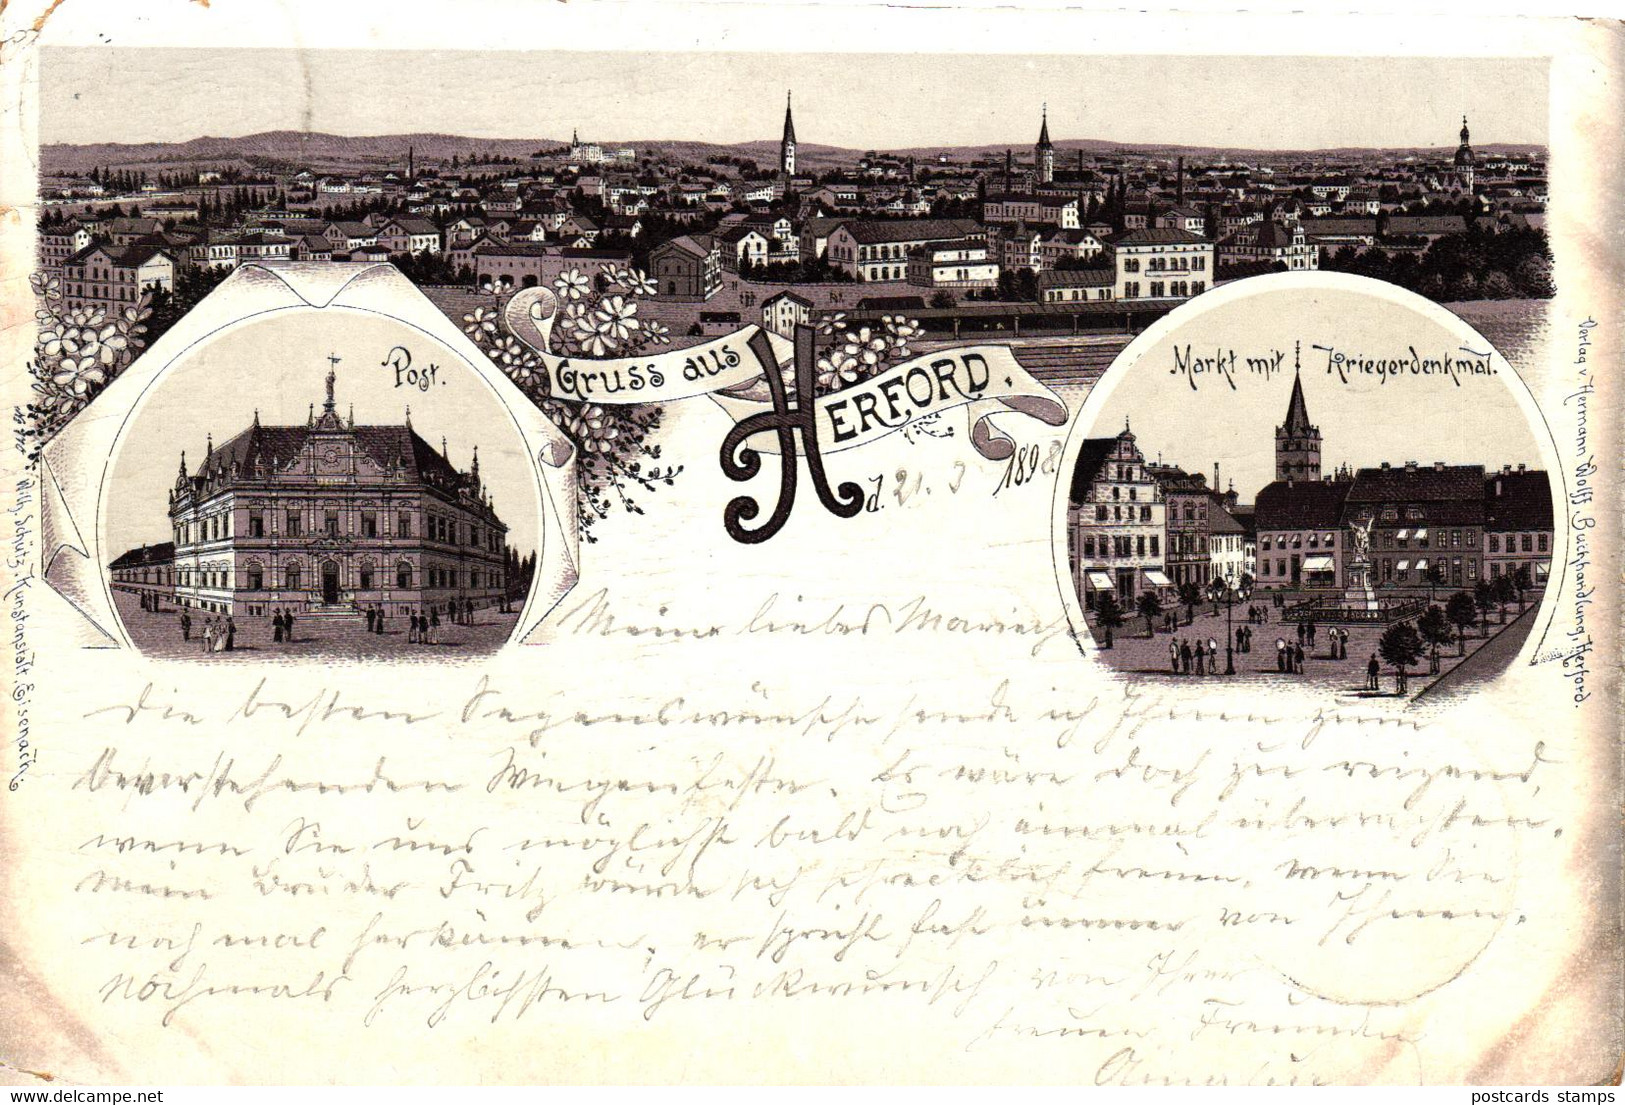 Post.
Gruss aus
HERFORD.
Markt mit Kriegerdenkmal.
d. 21. 3 1898
Verlag v. Hermann Wolff, Buchhandlung, Herford.
Wilh. Schütz, Kunstanstalt, Eisenach
Meine liebes Mariechen
die besten Segenswünsche sende ich Ihnen zum
bevorstehenden Wiegenfeste. Es wäre doch zu reizend,
wenn Sie uns möglichst bald noch einmal überraschten.
Mein Bruder Fritz würde sich schrecklich freuen, wenn Sie
noch mal herkämen, er spricht fast immer von Ihnen.
Nochmals herzlichsten Glückwunsch von Ihrer
treuen Freundin
postcards stamps